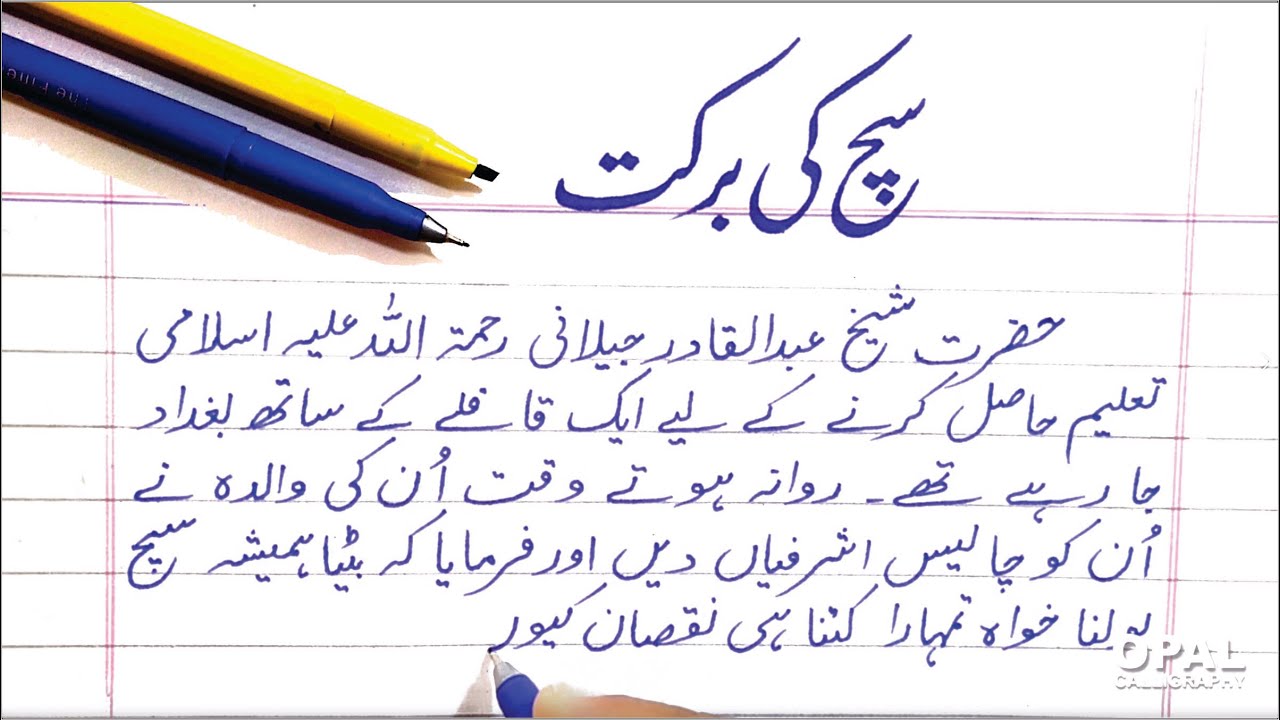 سچ کی برکت
حضرت شیخ عبدالقادر جیلانی رحمۃ اللہ علیہ اسلامی
تعلیم حاصل کرنے کے لیے ایک قافلے کے ساتھ بغداد
جا رہے تھے۔ روانہ ہوتے وقت اُن کی والدہ نے
اُن کو چالیس اشرفیاں دیں اور فرمایا کہ بیٹا ہمیشہ سچ
بولنا خواہ تمہارا کتنا ہی نقصان کیور
OPAL
CALLIGRAPHY